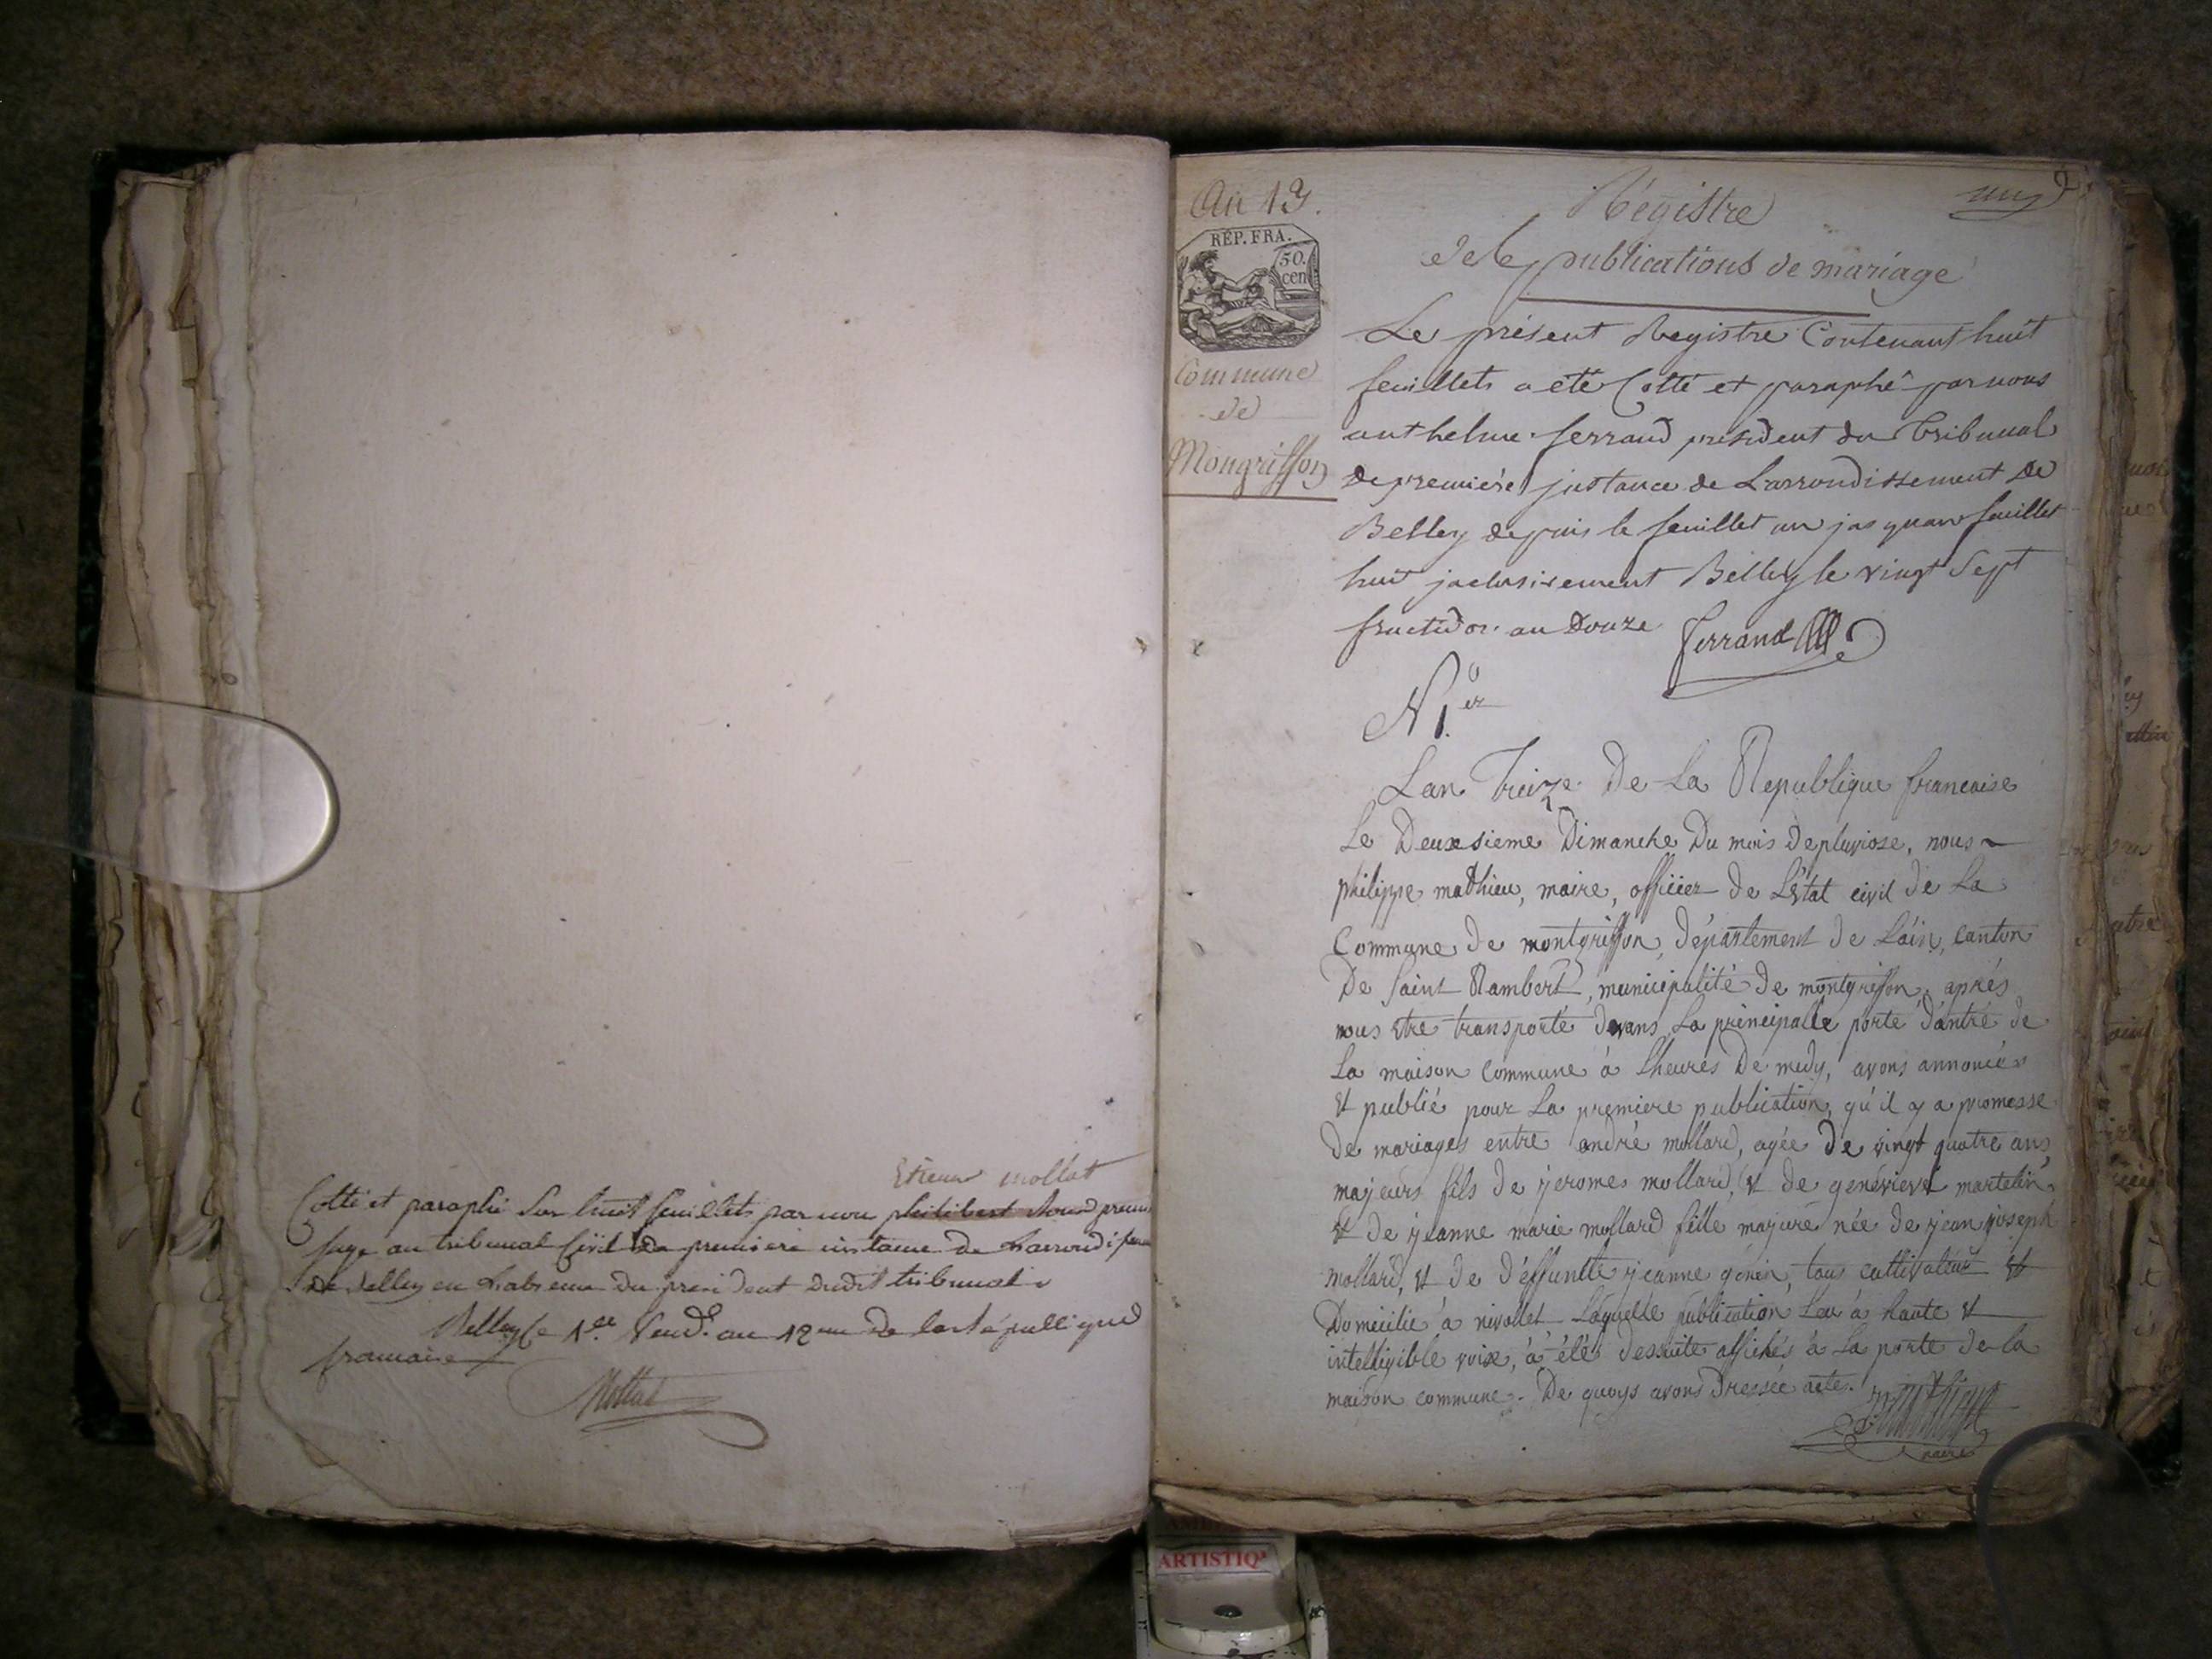 Etienne mollet
Cotté et paraphé sur huit feuillets par nous philibert premier
juge au tribunal Civil de premiere instance de Larrondissem
de belley en Labsence du president dudit tribunal
Belley le 1er Vend. an 12eme de la Républiqued
francaise
Mollet
An 13.
RÉP. FRA.
50. cen
Commune
de
Mongriffon
un
Régistre
de publications de mariage
Le présent Registre Contenant huit
feuillets a eté Cotté et paraphé par nous
anthelme ferrand président du tribunal
de premiére jnstance de Larrondissement de
Belley depuis le feuillet un jusquau feuillet
huit jnclusivement Belley le vingt Sept
fructidor an douze ferrand
No 1.er
Lan treize de La Republique francaise
Le Deuxsieme Dimanche Du mois depluviose, nous
philippe mathieu, maire, officier de L'état civil de La
Commune de montgriffon, département de L'ain, canton
De saint Rambert, municipalité de montgriffon, aprés
nous etre transporté devans La principalle porte d'antré de
La maison commune à Lheures De midy, avons annoncés
et publié pour La premiere publication, qu'il y a promesse
de mariages entre andré mollard, agée de vingt quatre ans,
majeurs fils de jeromes mollard, et de genevieve martelin
et de jeanne marie mollard fille majeure née de jean joseph
mollard, et de déffunte jeanne génin, tous cultivateur et
Domicilié à nivollet Laquelle publication Leu à haute et
intelligible voix, à été dessuite affichés à La porte de la
maison commune. De quoys avons Dressée acte.
maire